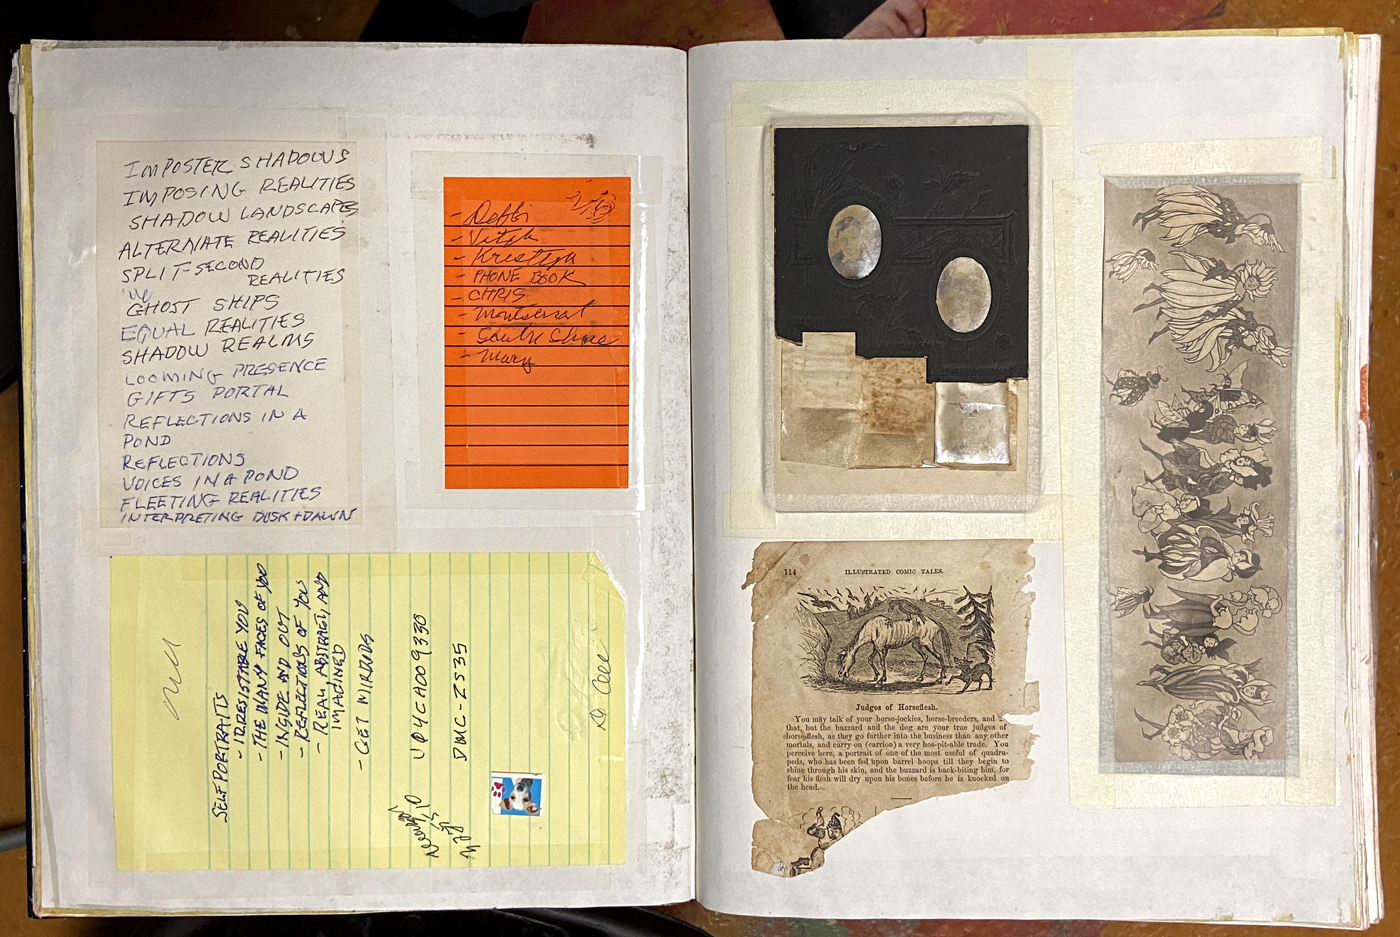 IMPOSTER SHADOWS
IMPOSING REALITIES
SHADOW LANDSCAPES
ALTERNATE REALITIES
SPLIT-SECOND
REALITIES
GHOST SHIPS
EQUAL REALITIES
SHADOW REALMS
LOOMING PRESENCE
GIFTS PORTAL
REFLECTIONS IN A
POND
REFLECTIONS
VOICES IN A POND
FLEETING REALITIES
INTERPRETING DUSK + DAWN
- Debbi
- PHONE BOOK
- CHRIS
- Montserrat
- Mary
SELF PORTRAITS
- IRRESISTABLE YOU
- THE MANY FACES OF YOU
- INSIDE AND OUT
- REFLECTIONS OF YOU
- REAL, ABSTRACT, AND
IMAGINED
- GET MIRRORS
DMC-ZS35
114
ILLUSTRATED COMIC TALES.
Judges of Horseflesh.
You may talk of your horse-jockies, horse-breeders, and
that, but the buzzard and the dog are your true judges of
horse-flesh, as they go further into the business than any other
mortals, and carry on (carrion) a very hos-pit-able trade. You
perceive here, a portrait of one of the most useful of quadru-
peds, who has been fed upon barrel hoops till they begin to
shine through his skin, and the buzzard is back-biting him, for
fear his flesh will dry upon his bones before he is knocked on
the head.